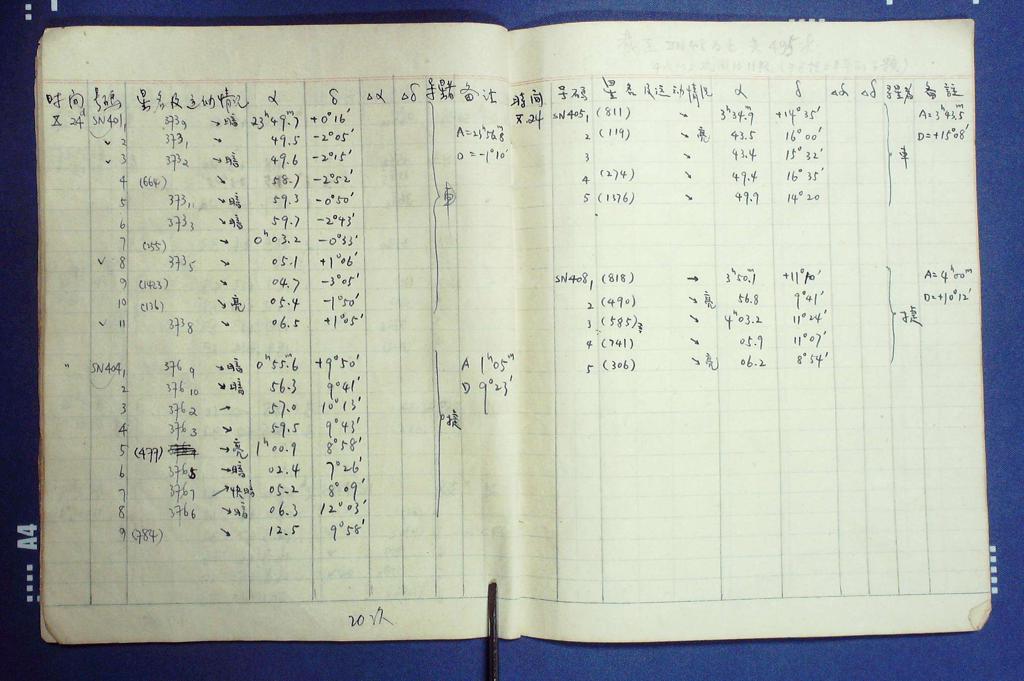 时间 号码 星名及运动情况 α δ Δα Δδ 寻星者 备注
X 24 SN401₁ 373₉ ↘暗 23ʰ49.7ᵐ +0°16′
✓ 2 373₁ ↘ 49.5 -2°05′ A=23ʰ56.8ᵐ
✓ 3 373₂ →暗 49.6 -2°15′ D=-1°10′
4 (664) ↘ 58.7 -2°52′
5 373₁₁ ↘暗 59.3 -0°50′ 車
6 373₃ ↘暗 59.7 -2°43′
7 (255) ↘ 0ʰ03.2 -0°33′
✓ 8 373₅ ↘ 05.1 +1°06′
9 (1423) ↘ 04.7 -3°05′
10 (136) ↘亮 05.4 -1°50′
✓ 11 373₈ ↘ 06.5 +1°05′
" SN404₁ 376₉ →暗 0ʰ55.6ᵐ +9°50′ A 1ʰ05ᵐ
2 376₁₀ →暗 56.3 9°41′ D 9°23′
3 376₂ → 57.0 10°13′
4 376₃ → 59.5 9°43′
5 (479) →亮 1ʰ00.9 8°58′
6 376₅ →暗 02.4 7°26′
7 376₇ ↗快暗 05.2 8°09′
8 376₆ ↘暗 06.3 12°03′
9 (784) ↘ 12.5 9°58′
20次
时间 号码 星名及运动情况 α δ Δδ Δδ 寻星者 备註
X.24 SN405₁ (811) ↘ 3ʰ34.9ᵐ +14°35′ A=3ʰ43.5ᵐ
2 (119) ↘亮 43.5 16°00′ D=+15°08′
3 ↘ 43.4 15°32′ 車
4 (274) ↘ 49.4 16°35′
5 (1376) ↘ 49.9 14°20
SN408₁ (818) → 3ʰ50.1ᵐ +11°10′ A=4ʰ00ᵐ
2 (490) ↘亮 56.8 9°41′ D=+10°12′
3 (585) ↘ 4ʰ03.2 11°24′
4 (741) ↘ 05.9 11°07′
5 (306) ↘亮 06.2 8°54′
A4